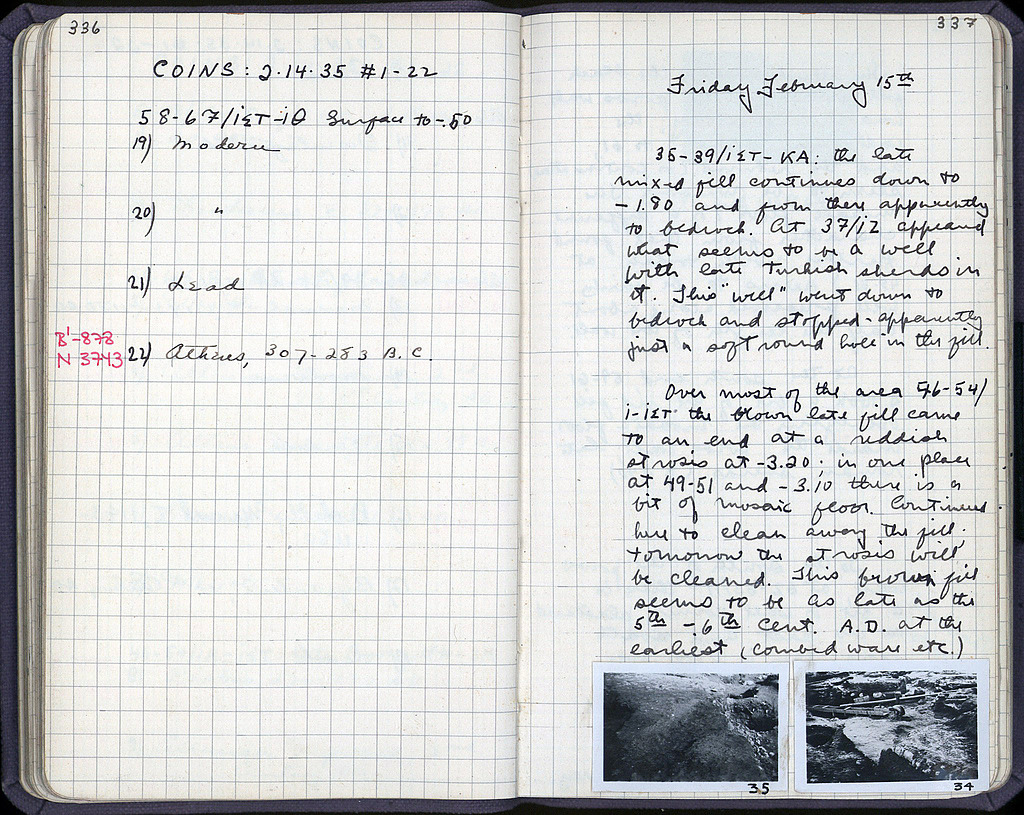 336
COINS: 2.14.35 #1-22
58-67/ιΣΤ-ιΘ Surface to -.50
19) Modern
20) "
21) Lead
B'-878
N 3743
22) Athens, 307-283 B.C.
337
Friday February 15th
35-39/ιΣΤ-ΚΑ: the late
mixed fill continues down to
-1.80 and from there apparently
to bedrock. At 37/ιΖ appeared
what seems to be a well
with late Turkish sherds in
it. This "well" went down to
bedrock and stopped - apparently
just a soft round hole in the fill.
Over most of the area 46-54/
ι-ιΣΤ the brown late fill came
to an end at a reddish
strosis at -3.20; in one place
at 49-51 and -3.10 there is a
bit of mosaic floor. Continued
here to clean away the fill;
tomorrow the strosis will
be cleaned. This brown fill
seems to be as late as the
5th - 6th Cent. A.D. at the
earliest (combed ware etc.)
35
34